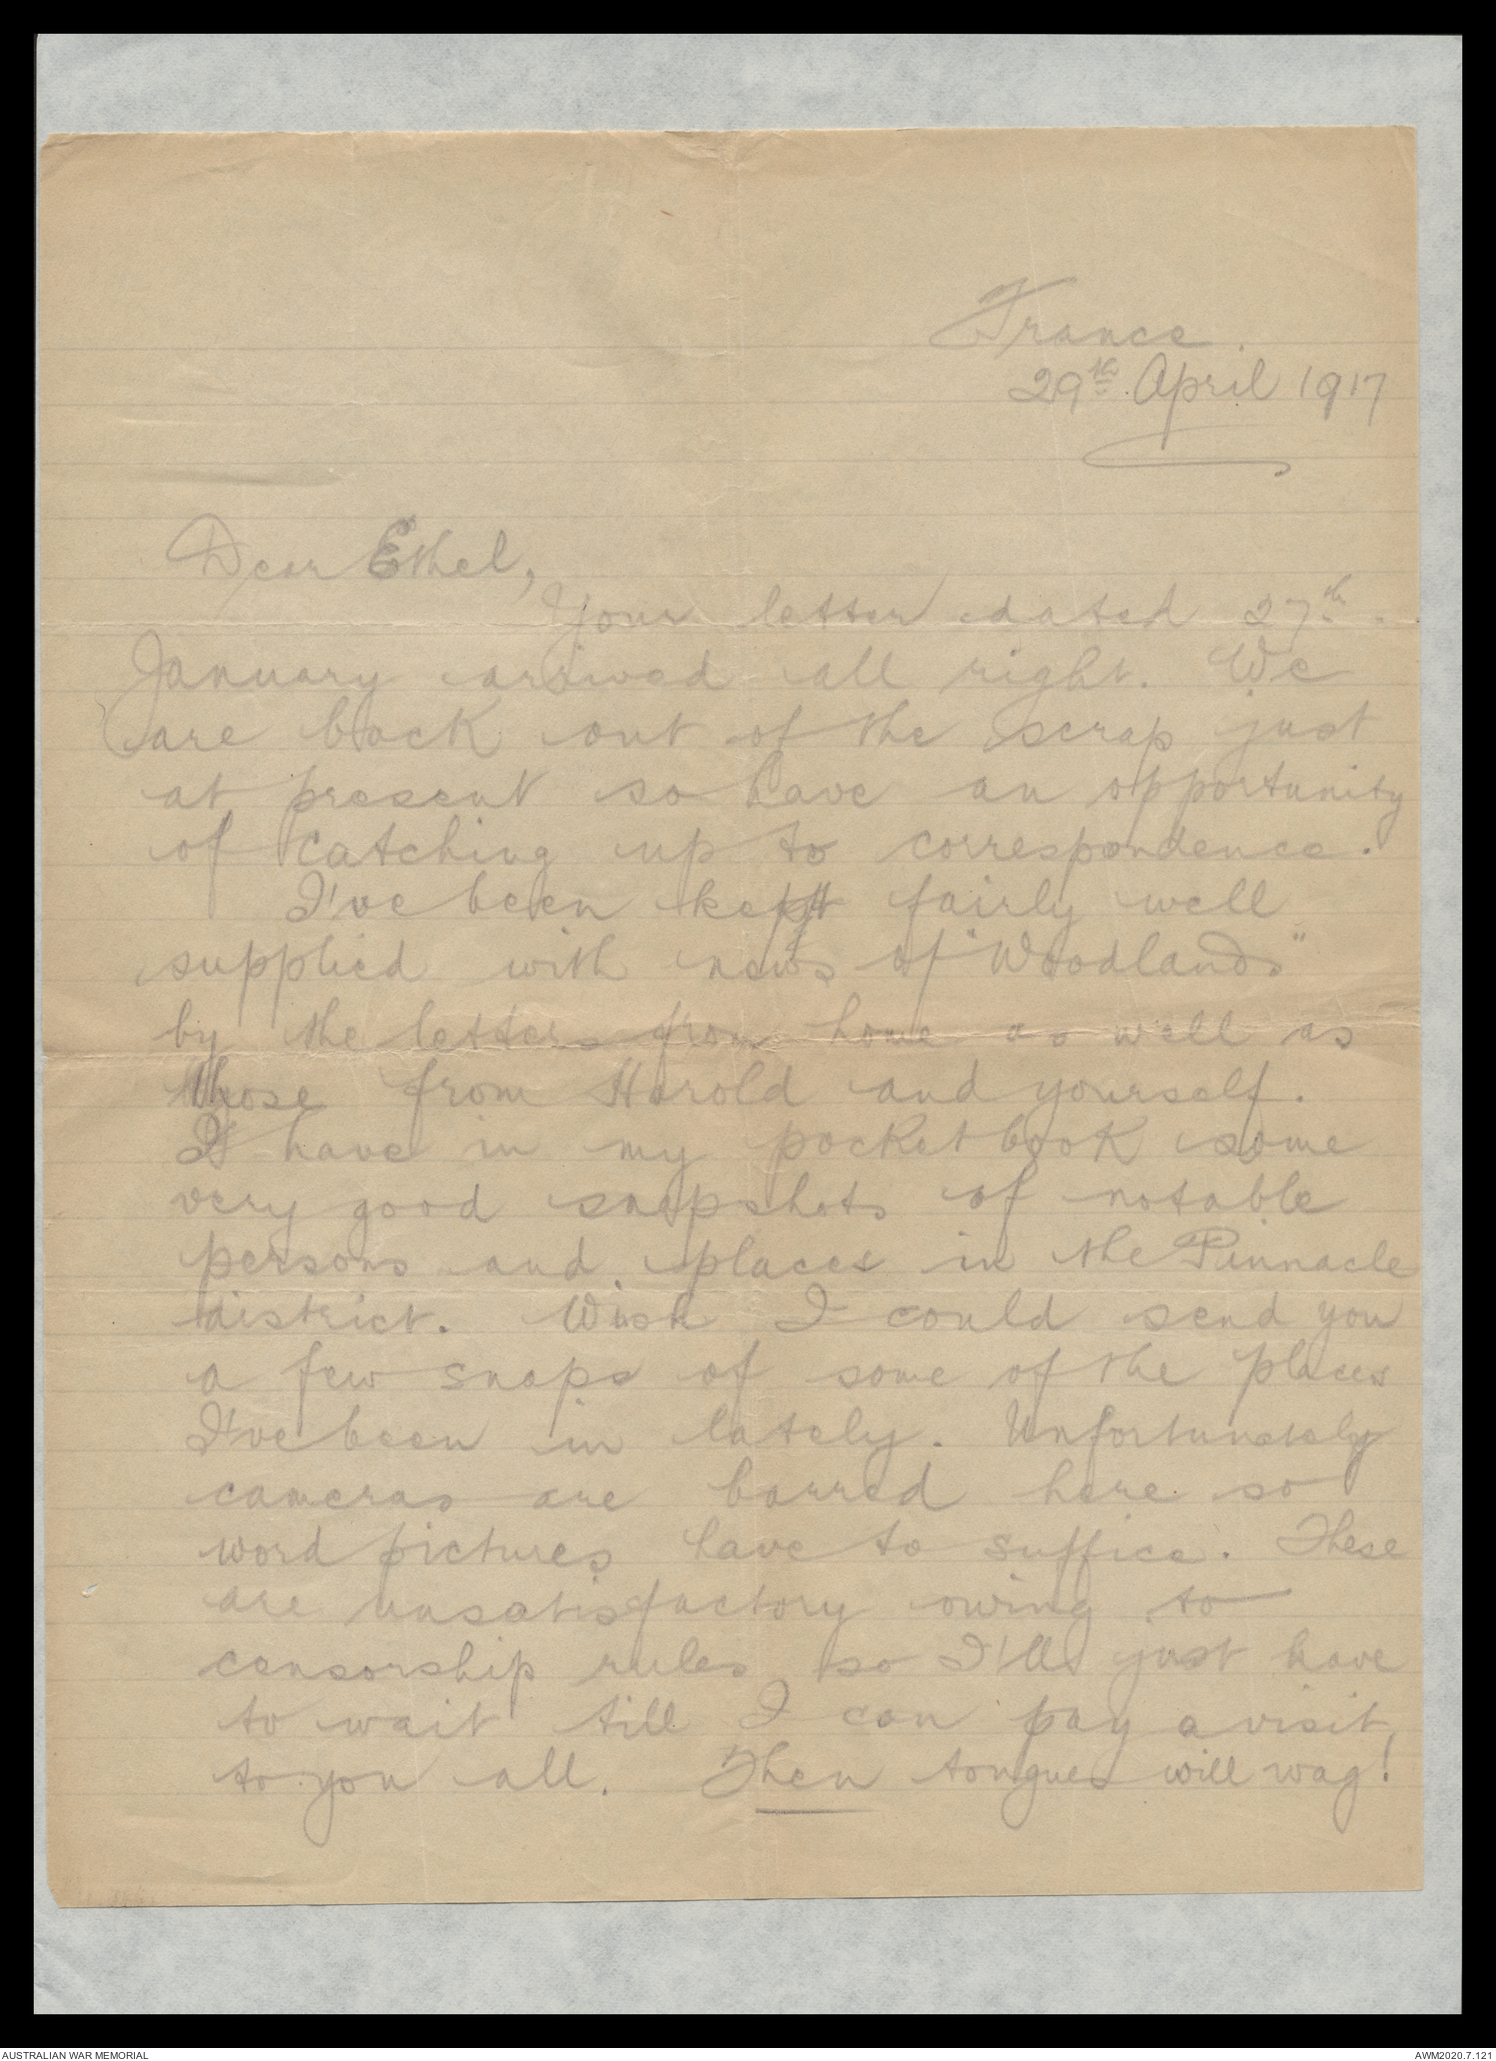 France.
29th. April 1917
Dear Ethel,
Your letter dated 27th.
January arrived all right. We
are back out of the scrap just
at present so have an opportunity
of catching up to correspondence.
I've been kept fairly well
supplied with news of "Woodlands"
by the letters from home as well as
those from Harold and yourself.
I have in my pocket book some
very good snapshots of notable
persons and places in the Pinnacle
district. Wish I could send you
a few snaps of some of the places
I've been in lately. Unfortunately
cameras are barred here so
word pictures have to suffice. These
are unsatisfactory owing to
censorship rules so I'll just have
to wait till I can pay a visit,
to you all. Then tongues will wag!
AUSTRALIAN WAR MEMORIAL
AWM2020.7.121